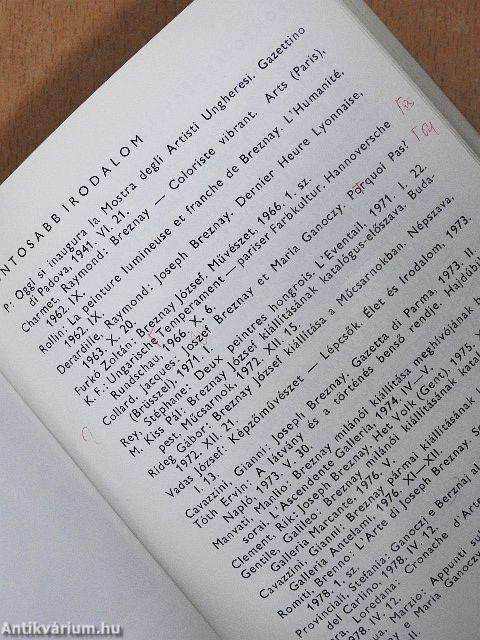 NTOSABB IRODALOM
P: Oggi si inaugura la Mostra degli Artisti Ungheresi. Gazettino
di Padova, 1941. VI. 21.
Charmet, Raymond: Breznay — Coloriste vibrant. Arts (Paris),
1962. IX.
Rollin: La peinture lumineuse et franche de Breznay. L'Humanité,
1962. IX.
Derardille, Raymond: Joseph Breznay. Dernier Heure Lyonnaise,
1963. X. 20.
Furkó Zoltán: Breznay József. Művészet, 1966. 1. sz.
K. F.: Ungarische Temperament — pariser Farbkultur. Hannoversche
Rundschau, 1966. X. 6.
Collard, Jacques: Joszef Breznay et Maria Ganoczy. Porquoi Pas?
(Brüsszel), 1971. I.
Rey, Stéphane: Deux peintres hongrois. L'Eventail, 1971. I. 22.
M. Kiss Pál: Breznay József kiállításának katalógus-előszava. Buda-
pest, Műcsarnok, 1972. XII. 15.
Rideg Gábor: Breznay József kiállítása a Műcsarnokban. Népszava,
1972. XII. 21.
Vadas József: Képzőművészet — Lépcsők. Élet és Irodalom, 1973.
I. 13.
Cavazzini, Gianni: Joseph Breznay. Gazetta di Parma, 1973. II.
Tóth Ervin: A látvány és a történés benső rendje. Hajdúbi
Napló, 1973. V. 30.
Manvati, Manlio: Breznay milánói kiállítása meghívójának b
sorai. L'Ascendente Galleria, 1974. IV—V.
Clement, Rik: Joseph Breznay. Het Volk (Gent), 1975. X
Gentile, Galileo: Breznay milánói kiállításának katal
Galleria Marcante, 1976. V.
Cavazzini, Gianni: Breznay pármai kiállításának
Galleria Antelami, 1976. XI—XII.
Romiti, Brenno: L'Arte di Joseph Breznay. S
1978. 1. sz.
Provinciali, Stefania: Ganoczi e Berznaj al
del Carlino, 1978. IV. 12.
Loredana: Cronache d'Arte
1978. IV. 12.
Marzio: Appunti su
e Maria Ganoczy
Antikvárium.hu